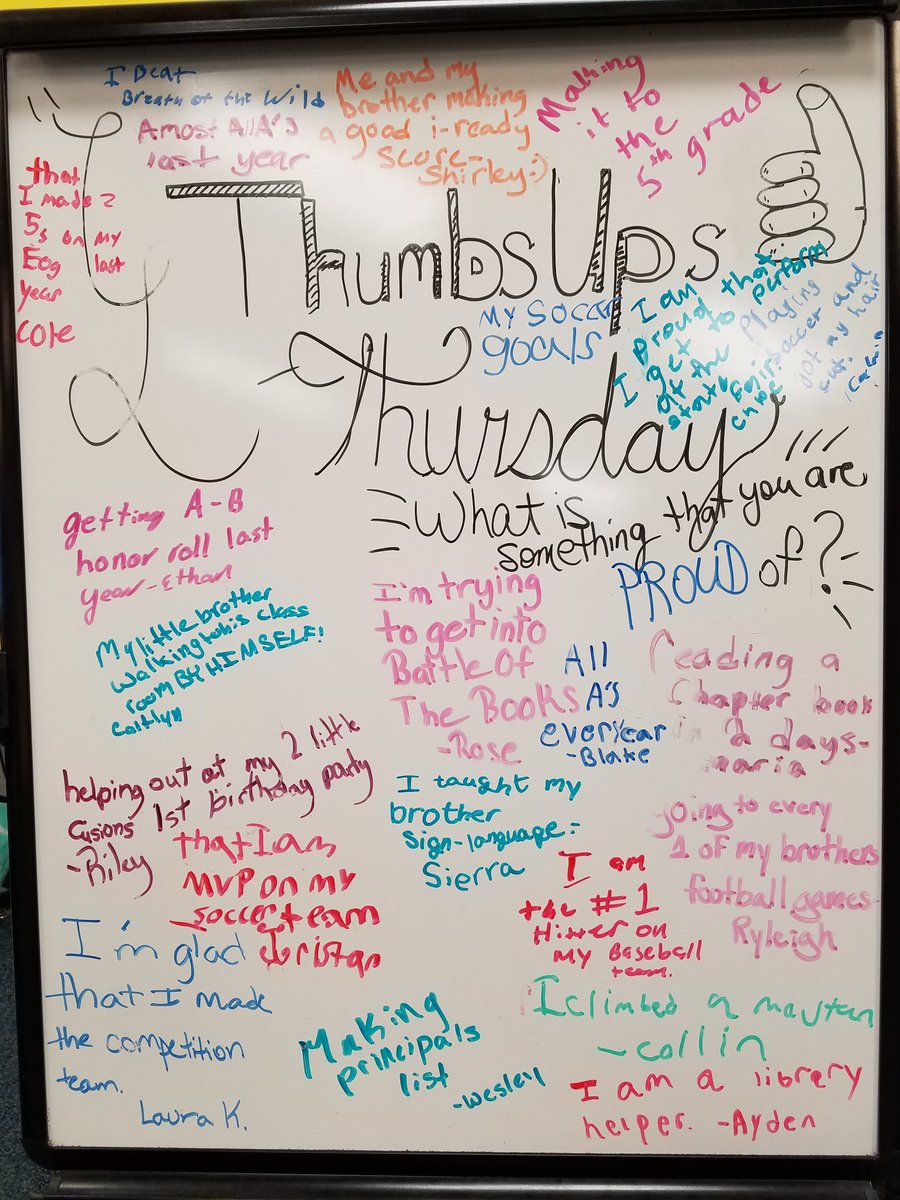 I Beat
Breath of the Wild
Amost All A's
last year
Me and my
brother making
a good i-ready
score-
Shirley:)
Making
it to
the
5th grade
that
I made 2
5s on my
Eog last
year
Cole
Thumbs Ups
Thursday
MY SOCCER
goals
I am
proud that
I get to perform
at the
state fair
Playing
soccer and
got my hair
cut.
What is
something that you are
PROUD of?
getting A-B
honor roll last
year-Ethan
My little brother
walking to his class
room BY HIMSELF!
Caitlyn
I'm trying
to get into
Battle Of
The Books
-Rose
All
A's
everyear
-Blake
reading a
Chapter book
in 2 days-
maria
helping out at my 2 little
cusions 1st birthday party
-Riley
that I am
MVP on my
soccer team
I taught my
brother
sign-language:-
Sierra
going to every
1 of my brothers
football games
Ryleigh
I am
the #1
Hitter on
my Baseball
team.
I'm glad
that I made
the competition
team.
Laura K.
Making
principals
list
-Wesley
I climbed a mautan
-collin
I am a library
helper. -Ayden